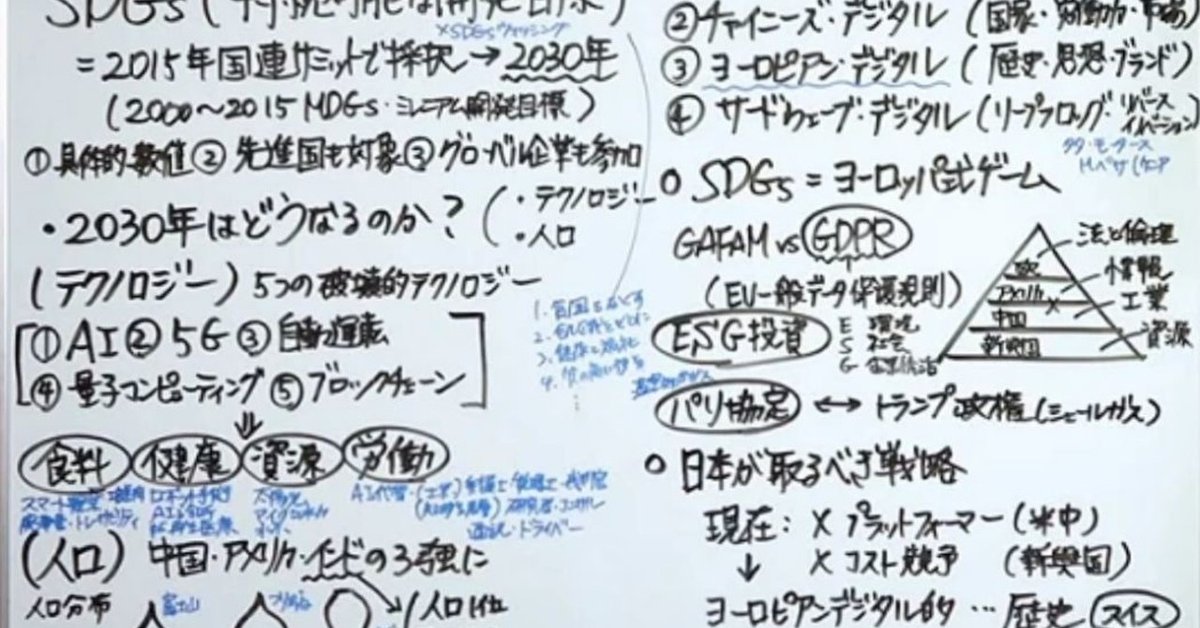 SDGs (持続可能な開発目標)
×SDGsウォッシング
=2015年国連サミットで採択→2030年
(2000〜2015 MDGs・ミレニアム開発目標)
①具体的・数値②先進国も対象③グローバル企業も参加
・2030年はどうなるのか?(・テクノロジー
・人口
(テクノロジー)5つの破壊的テクノロジー
①AI②5G③自動運転
④量子コンピューティング⑤ブロックチェーン
⇓
食料 健康 資源 労働
スマート
トレイサビリティ
ロボット手術
AI
再生医療
太陽光
AI代替・(工業)弁護士・税理士・裁判官
通訳・ドライバー
(人口)中国・アメリカ・インドの3強に
人口分布
富士山
人口1位
1. 貧困をなくす
2.
3. 健康と福祉
4. 質の高い教育
⋮
②チャイニーズ・デジタル(国家・労働力・市場)
③ヨーロピアン・デジタル(歴史・思想・ブランド)
④サードウェーブ・デジタル(リープフロッグ・リバースイノベーション)
タタ・モータース
Mペサ
○SDGs=ヨーロッパ式ゲーム
GAFAM vs GDPR
(EU一般データ保護規則)
欧 法と倫理
アメリカ 情報
中国 工業
新興国 資源
ESG投資
E 環境
S 社会
G 企業統治
パリ協定↔トランプ政権(シェールガス)
○日本が取るべき戦略
現在:×プラットフォーマー(米中)
↓ ×コスト競争(新興国)
ヨーロピアンデジタル的…歴史 スイス